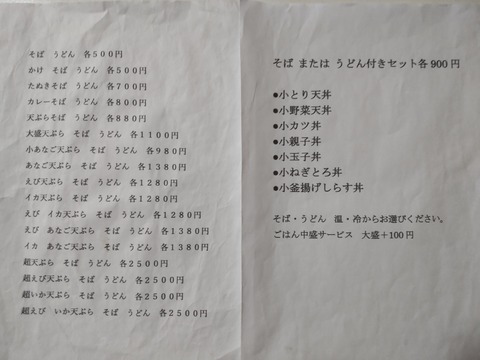 そば うどん 各500円
かけ そば うどん 各500円
たぬきそば うどん 各700円
カレーそば うどん 各800円
天ぷらそば うどん 各880円
大盛天ぷら そば うどん 各1100円
小あなご天ぷら そば うどん 各980円
あなご天ぷら そば うどん 各1380円
えび天ぷら そば うどん 各1280円
イカ天ぷら そば うどん 各1280円
えび イカ天ぷら そば うどん 各1280円
えび あなご天ぷら そば うどん 各1380円
イカ あなご天ぷら そば うどん 各1380円
超天ぷら そば うどん 各2500円
超えび天ぷら そば うどん 各2500円
超いか天ぷら そば うどん 各2500円
超えび いか天ぷら そば うどん 各2500円
そば または うどん付きセット各900円
●小とり天丼
●小野菜天丼
●小カツ丼
●小親子丼
●小玉子丼
●小ねぎとろ丼
●小釜揚げしらす丼
そば・うどん 温・冷からお選びください。
ごはん中盛サービス 大盛+100円